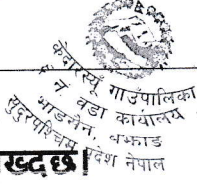 केदारस्यूँ गाउँपालिका
५ नं वडा कार्यालय
भाडसैन, बझाङ
सुदुरपश्चिम प्रदेश नेपाल